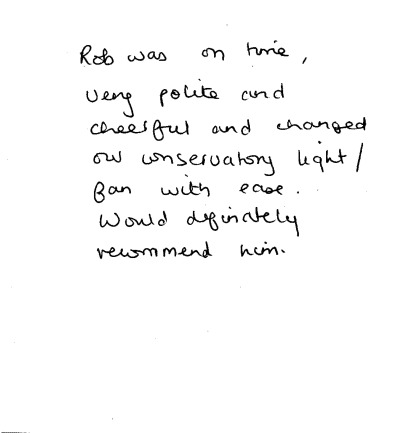 Rob was on time,
very polite and
cheerful and changed
our conservatory light/
fan with ease.
Would definately
recommend him.